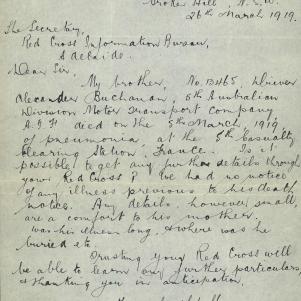 Broken Hill, N.S.W.
26th March 1919.
The Secretary,
Red Cross Information Bureau,
Adelaide.
Dear Sir,
My brother, No. 13465, Driver
Alexander Buchanan, 5th Australian
Division Motor Transport Company
A.I.F died on the 5th March, 1919
of pneumonia, at the 5th Casualty
Clearing Station, France. Is it
possible to get any further details through
your Red Cross? We had no notice
of any illness previous to his death
notice. Any details, however small,
are a comfort to his mother.
Was his illness long, & where was he
buried etc.
Trusting your Red Cross will
be able to learn any further particulars,
& thanking you in anticipation.